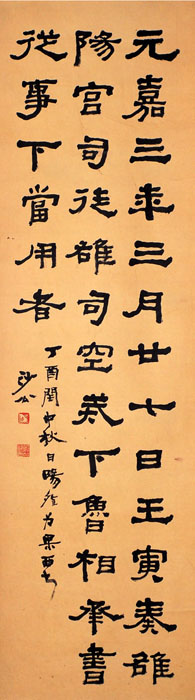 元嘉三年三月廿七日壬寅奏雒
陽宮司徒雄司空戒下魯相承書
從事下當用者
丁酉閏中秋日
沙公